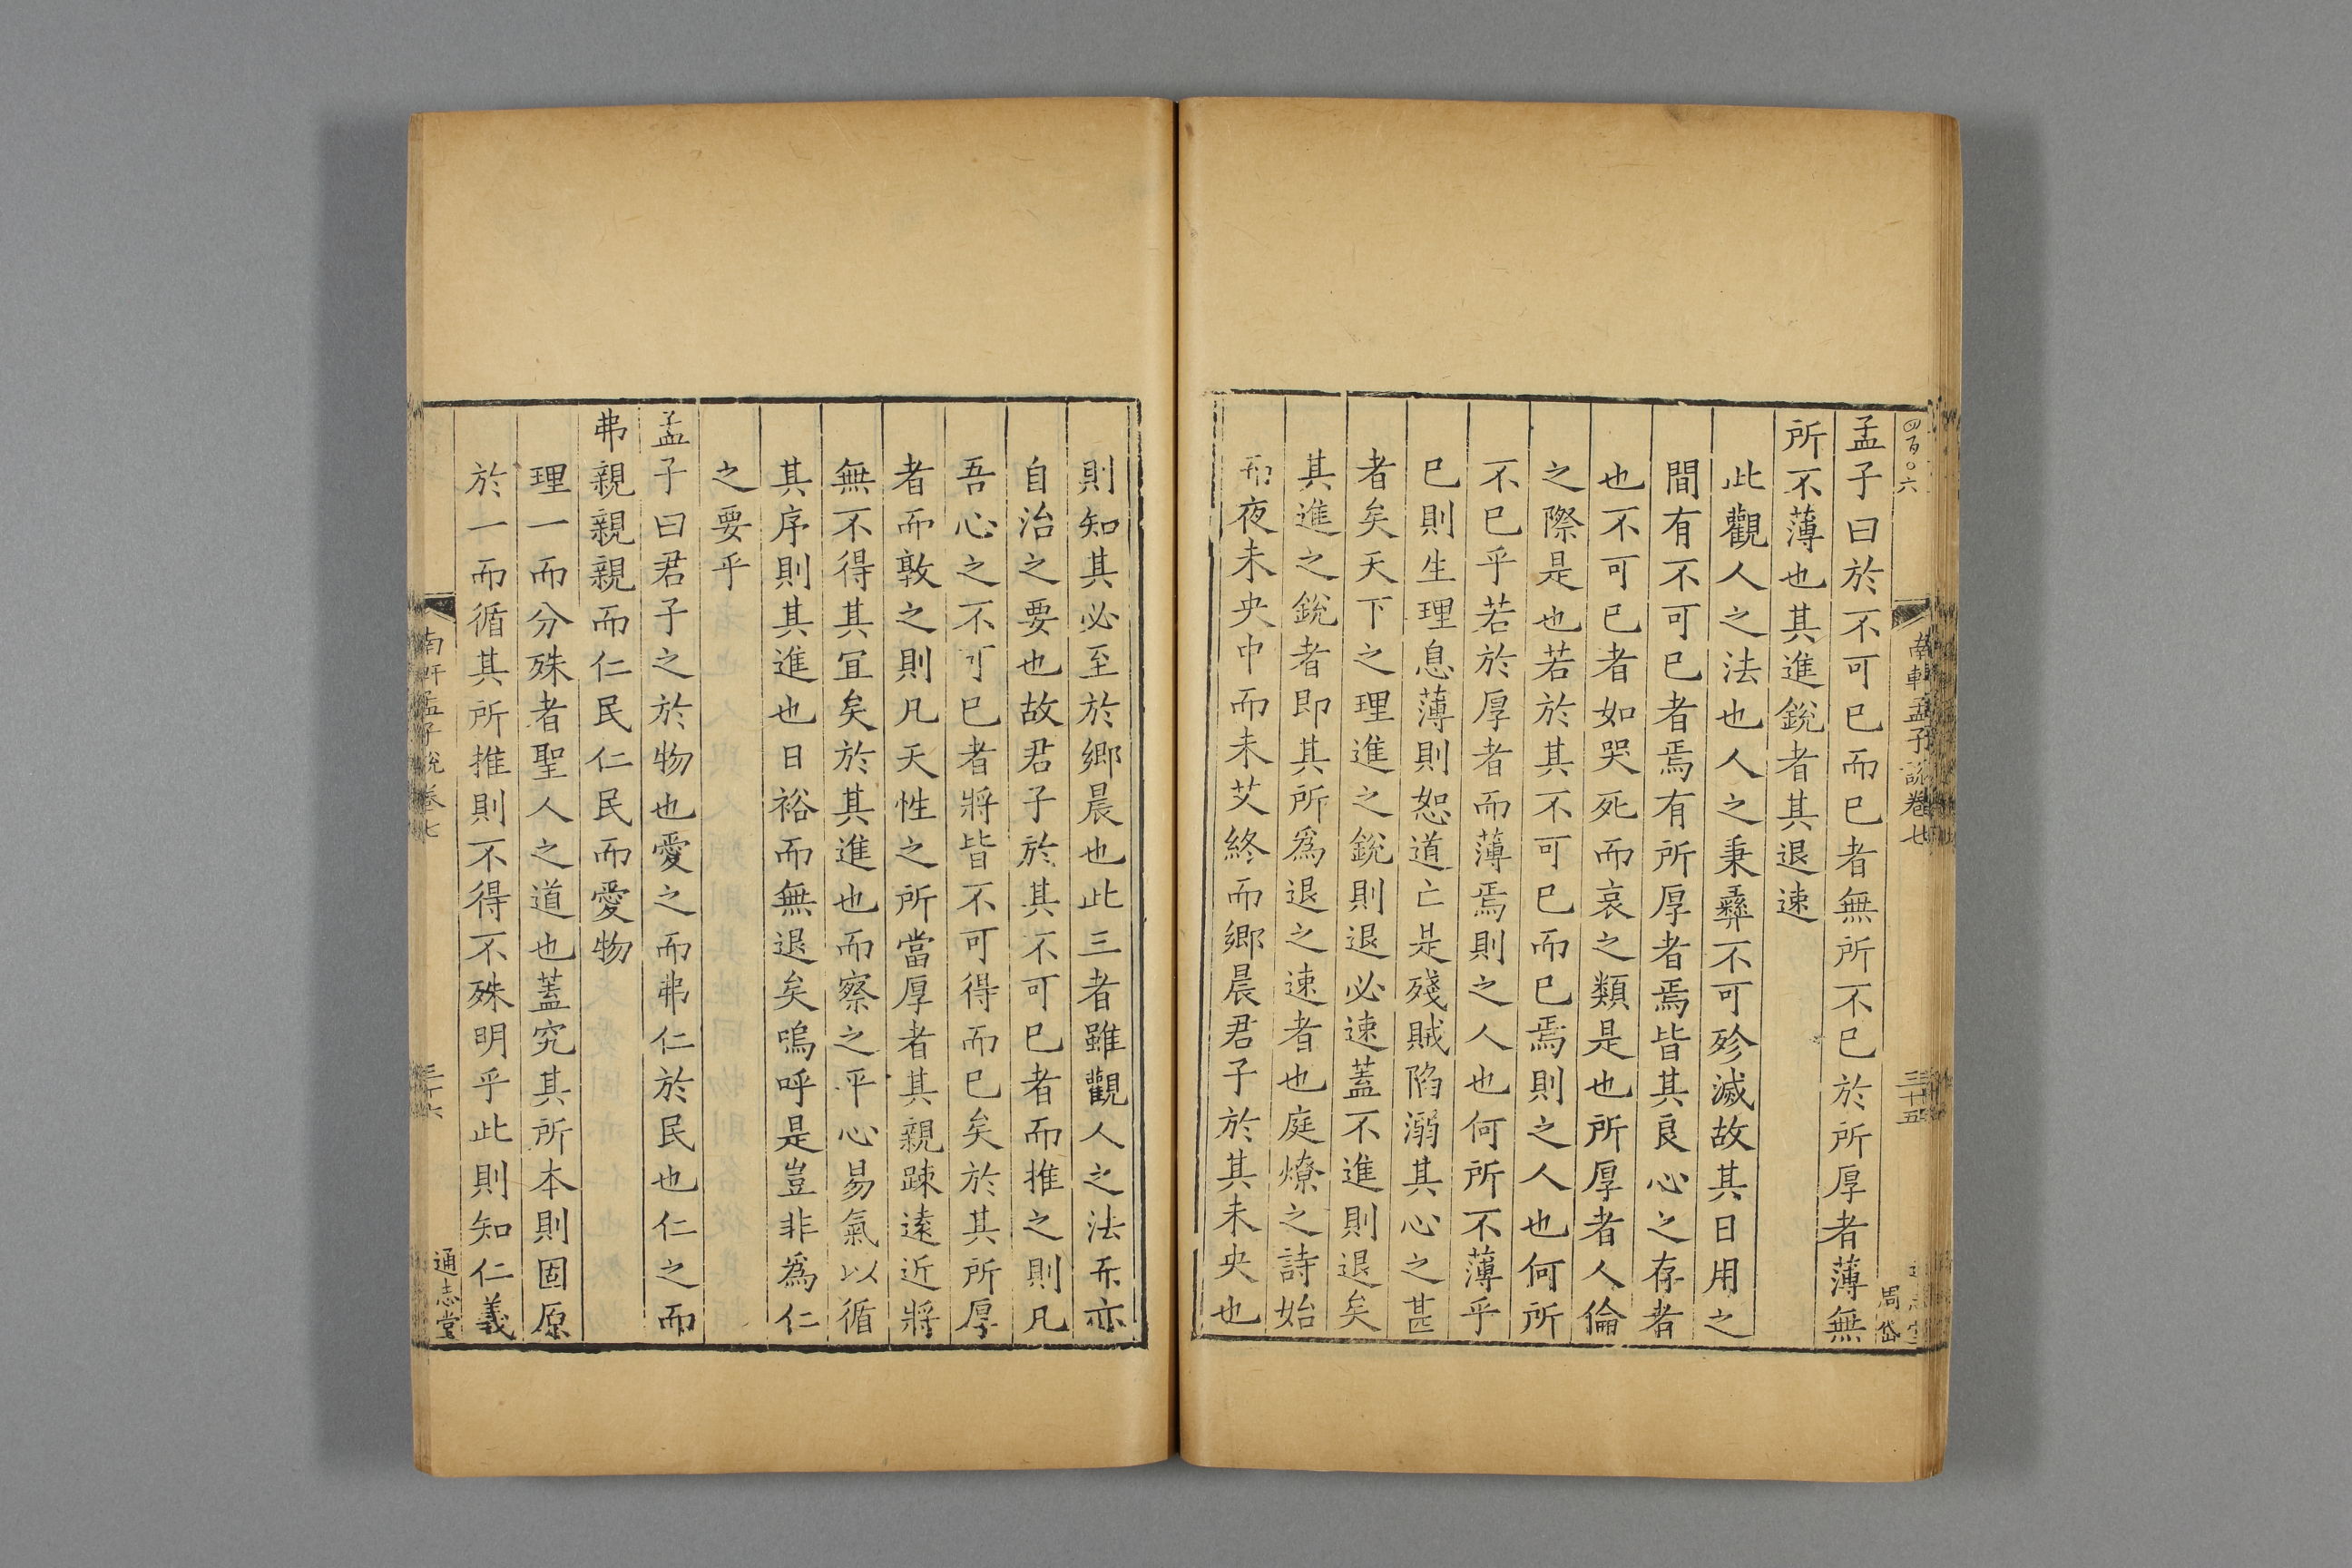 四百〇六
南軒孟子說卷七
三十五
周岱
孟子曰於不可已而已者無所不已於所厚者薄無
所不薄也其進銳者其退速
此觀人之法也人之秉彝不可殄滅故其日用之
間有不可已者焉有所厚者焉皆其良心之存者
也不可已者如哭死而哀之類是也所厚者人倫
之際是也若於其不可已而已焉則之人也何所
不已乎若於厚者而薄焉則之人也何所不薄乎
已則生理息薄則恕道亡是殘賊陷溺其心之甚
者矣天下之理進之銳則退必速蓋不進則退矣
其進之銳者即其所爲退之速者也庭燎之詩始
而夜未央中而未艾終而鄉晨君子於其未央也
則知其必至於鄉晨也此三者雖觀人之法亦
自治之要也故君子於其不可已者而推之則凡
吾心之不可已者將皆不可得而已矣於其所厚
者而敦之則凡天性之所當厚者其親踈遠近將
無不得其宜矣於其進也而察之平心易氣以循
其序則其進也日裕而無退矣嗚呼是豈非爲仁
之要乎
孟子曰君子之於物也愛之而弗仁於民也仁之而
弗親親親而仁民仁民而愛物
理一而分殊者聖人之道也蓋究其所本則固原
於一而循其所推則不得不殊明乎此則知仁義
南軒孟子說卷七
三十六
通志堂